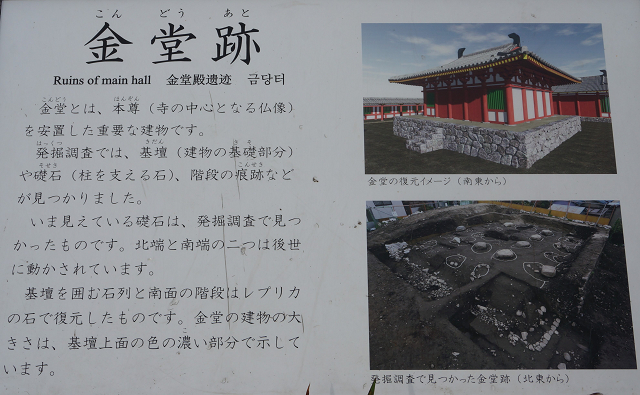 こん どう あと
金堂跡
Ruins of main hall 金堂殿遗迹 금당터
こんどう ほんぞん
金堂とは、本尊（寺の中心となる仏像）
を安置した重要な建物です。
はっくつ きだん きそ
発掘調査では、基壇（建物の基礎部分）
そせき こんせき
や礎石（柱を支える石）、階段の痕跡など
が見つかりました。
いま見えている礎石は、発掘調査で見つ
かったものです。北端と南端の二つは後世
に動かされています。
基壇を囲む石列と南面の階段はレプリカ
の石で復元したものです。金堂の建物の大
こ
きさは、基壇上面の色の濃い部分で示して
います。
金堂の復元イメージ（南東から）
発掘調査で見つかった金堂跡（北東から）